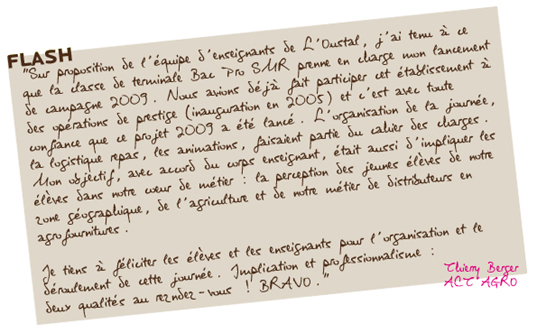 FLASH
"Sur proposition de l'équipe d'enseignants de L'Oustal, j'ai tenu à ce
que la classe de terminale Bac Pro SMR prenne en charge mon lancement
de campagne 2009. Nous avions déjà fait participer cet établissement à
des opérations de prestige (inauguration en 2005) et c'est avec toute
confiance que ce projet 2009 a été lancé. L'organisation de la journée,
la logistique repas, les animations, faisaient partie du cahier des charges.
Mon objectif, avec accord du corps enseignant, était aussi d'impliquer les
élèves dans notre cœur de métier : la perception des jeunes élèves de notre
zone géographique, de l'agriculture et de notre métier de distributeurs en
agrofournitures.
Je tiens à féliciter les élèves et les enseignants pour l'organisation et le
déroulement de cette journée. Implication et professionnalisme :
deux qualités au rendez-vous ! BRAVO."
Thierry Berger
ACT'AGRO